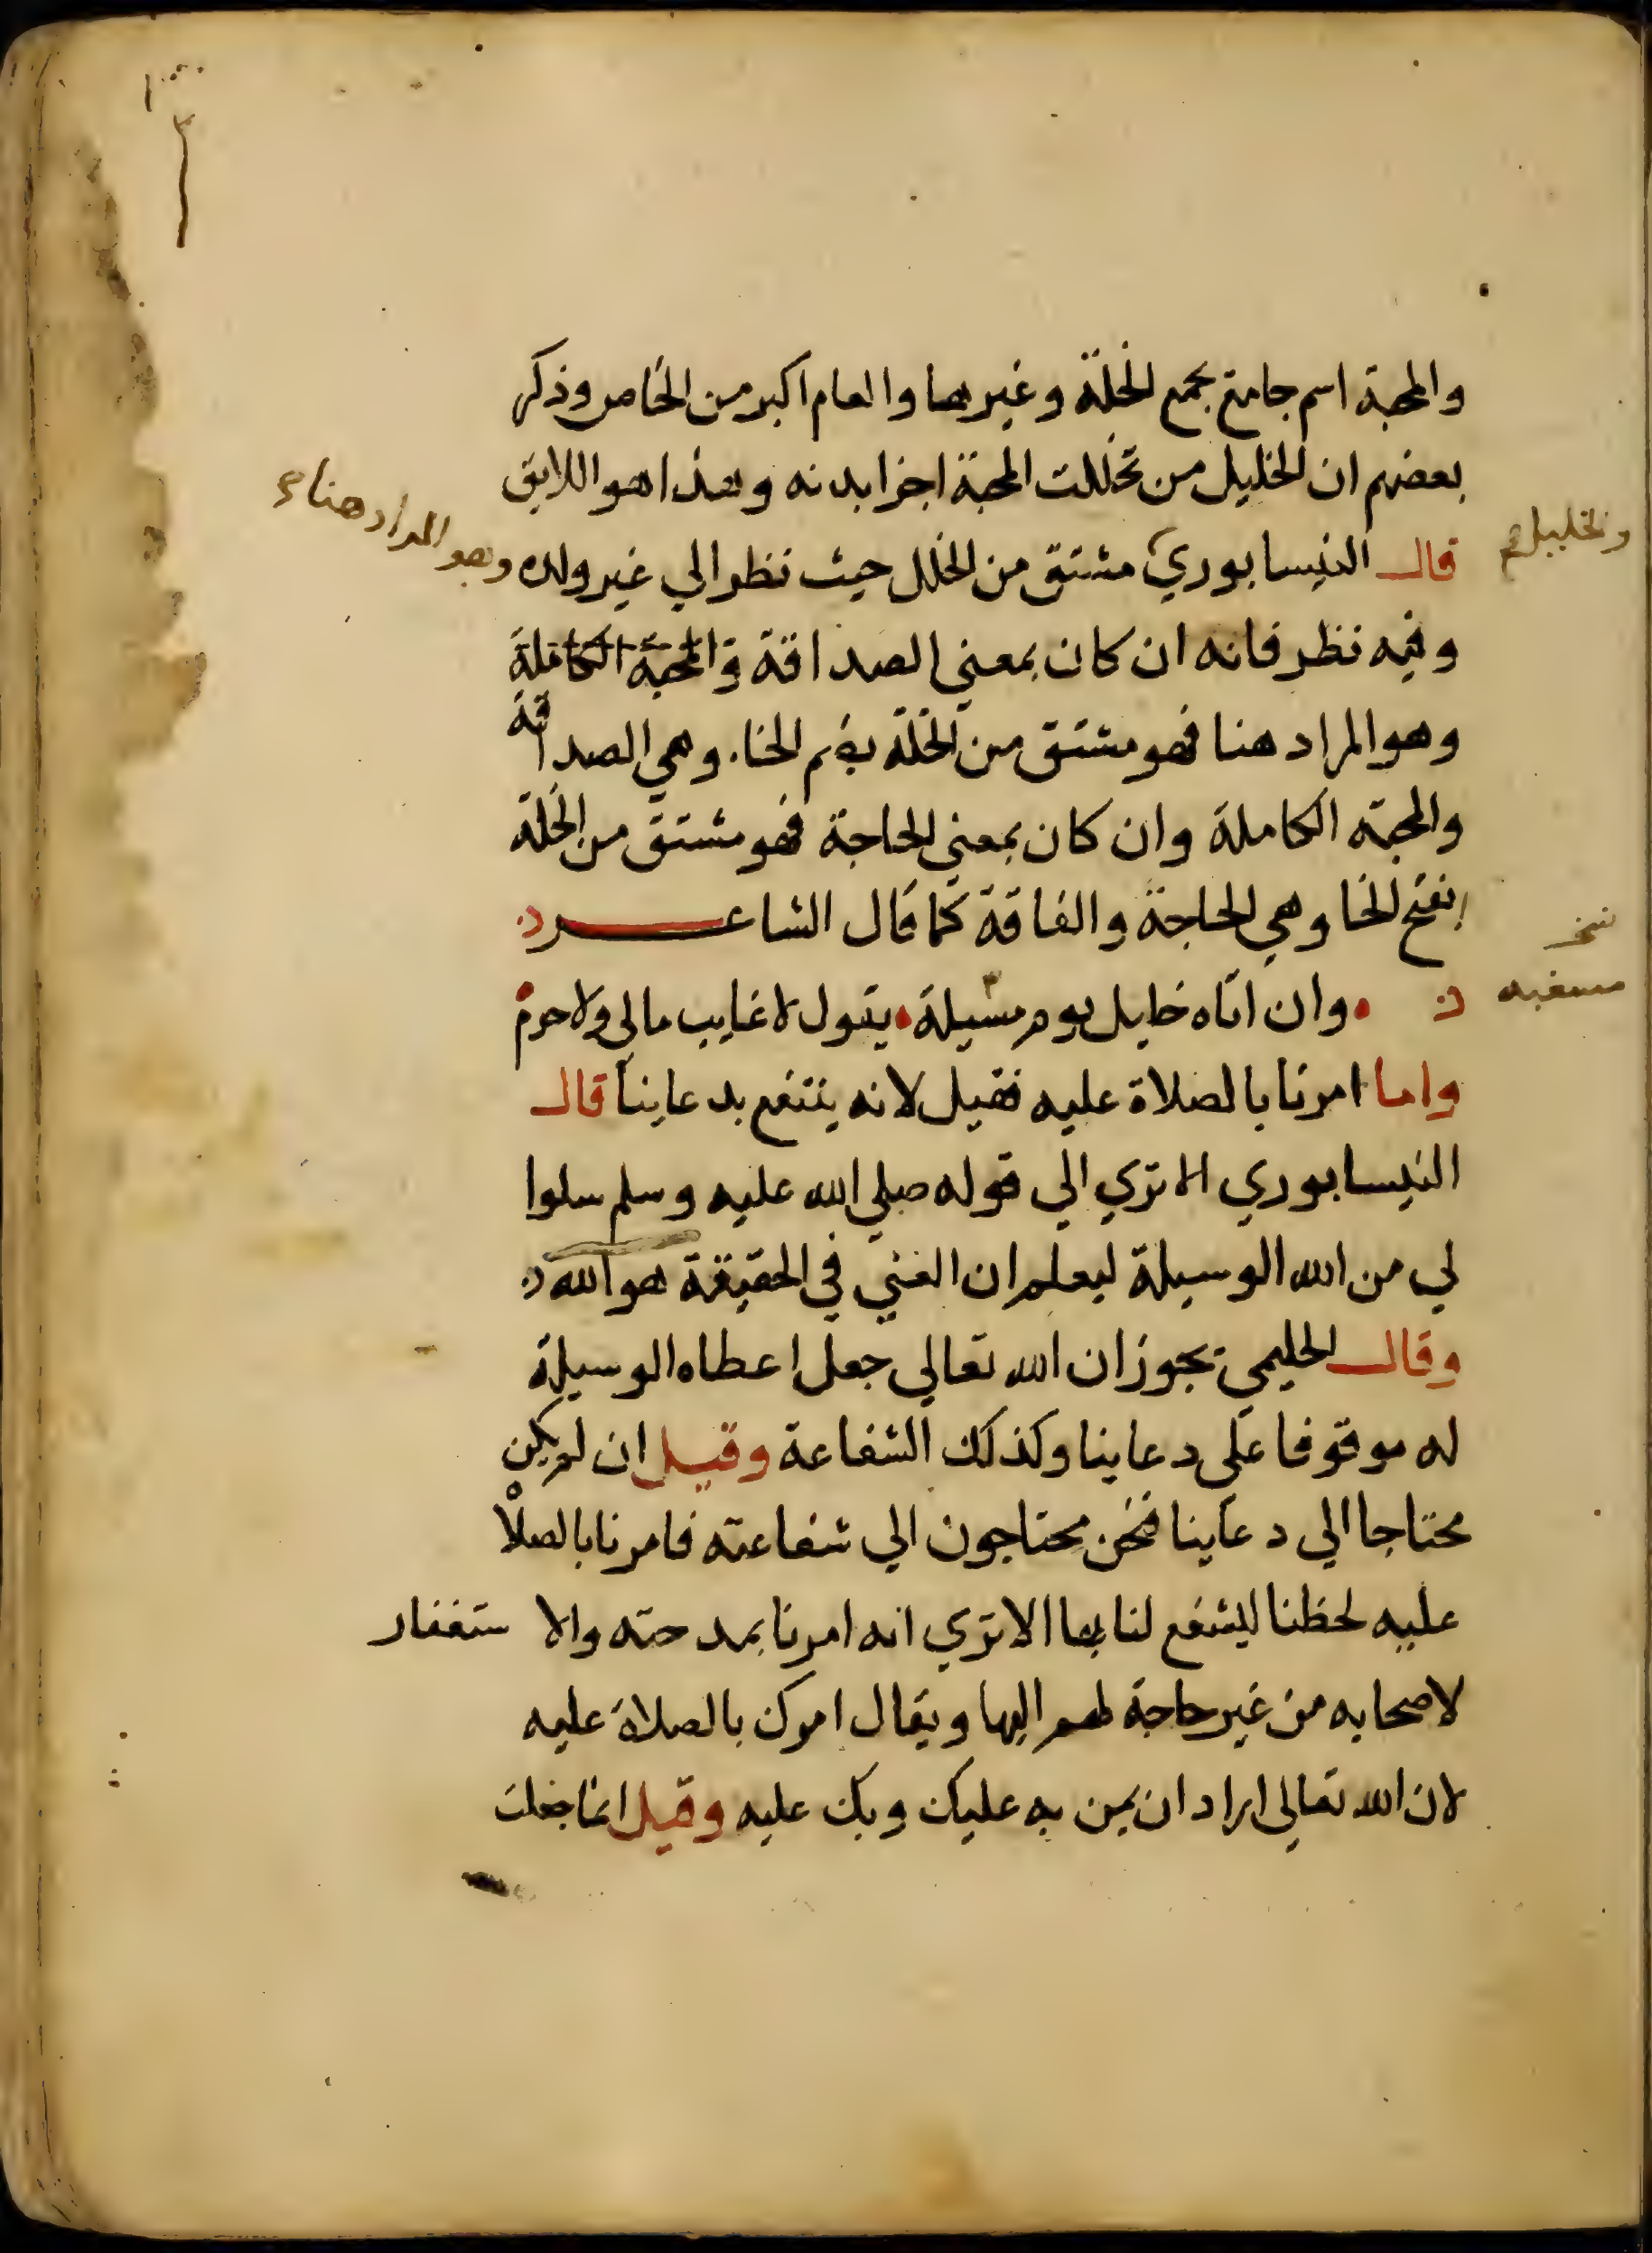 والمحبة اسم جامع يجمع الخلة وغيرها والعام اكبر من الخاص وذكر
بعضهم ان الخليل من تخللت المحبة اجزا بدنه وهذا هو اللايق
والخليل
قال النيسابوري مشتق من الخلل حيث نظر الي غير ولده
وهو المراد هنا
وفيه نظر فانه ان كان بمعني الصداقة والمحبة الكاملة
وهو المراد هنا فهو مشتق من الخلة بضم الخاء وهي الصداقة
والمحبة الكاملة وان كان بمعني الحاجة فهو مشتق من الخلة
بفتح الخا وهي الحاجة والفاقة كما قال الشاعر
وان اتاه خليل يوم مسيلة يقول لا غايب مالي ولا حرم
نخـ
مسغبه
واما امرنا بالصلاة عليه فقيل لانه ينتفع بدعاينا قال
النيسابوري الا تري الي قوله صلي الله عليه وسلم سلوا
لي من الله الوسيلة ليعلم ان الغني في الحقيقة هو الله
وقال الحليمي يجوز ان الله تعالي جعل اعطاه الوسيلة
له موقوفا علي دعاينا وكذلك الشفاعة وقيل ان لم يكن
محتاجا الي دعاينا فنحن محتاجون الي شفاعته فامرنا بالصلاة
عليه لحظنا ليشفع لنا بها الا تري انه امرنا بمدحته والاستغفار
لاصحابه من غير حاجة لهم اليها ويقال امرك بالصلاة عليه
لان الله تعالي اراد ان يمن به عليك وبك عليه وقيل انما جعلت